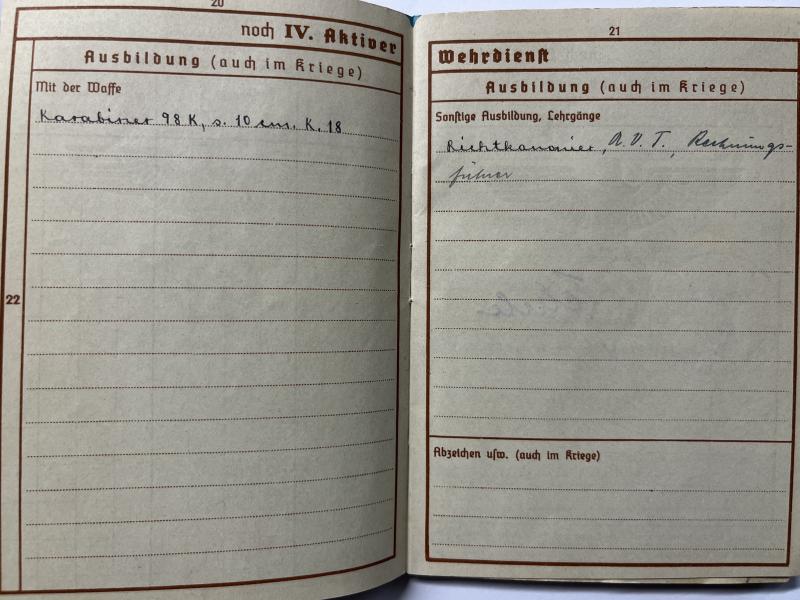 20
noch IV. Aktiver
Ausbildung (auch im Kriege)
Mit der Waffe
Karabiner 98 K, s. 10 cm. K. 18
22
21
Wehrdienst
Ausbildung (auch im Kriege)
Sonstige Ausbildung, Lehrgänge
Richtkanonier, A.V.T., Rechnungs-
führer
Abzeichen usw. (auch im Kriege)